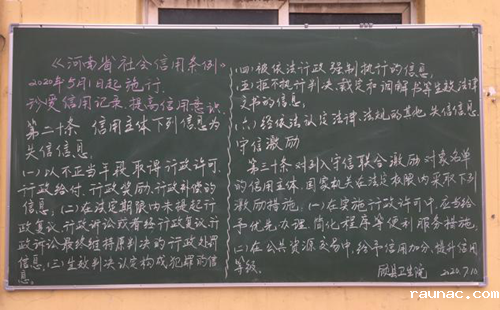 《河南省社会信用条例》
2020年5月1日起施行.
珍爱信用记录 提高信用意识.
第二十条 信用主体下列信息为
失信信息.
(一)以不正当手段取得行政许可.
行政给付.行政奖励.行政补偿的
信息.(二)在法定期限内未提起行
政复议.行政诉讼或者经行政复议.行
政诉讼最终维持原判决的行政处罚
信息.(三)生效判决认定构成犯罪的信
息。
(四)被依法行政强制执行的信息.
(五)拒不执行判决.裁定和调解书等生效法律
文书的信息.
(六)经依法认定法律.法规的其他失信信息.
守信激励
第三十条 对列入守信联合激励对象名单
的信用主体.国家机关在法定权限内采取下列
激励措施.(一)在实施行政许可中.应当给
予优先办理.简化程序等便利服务措施.
(二)在公共资源交易中.给予信用加分.提升信用
等级.
卫生院 2020.7.10
raunac.com